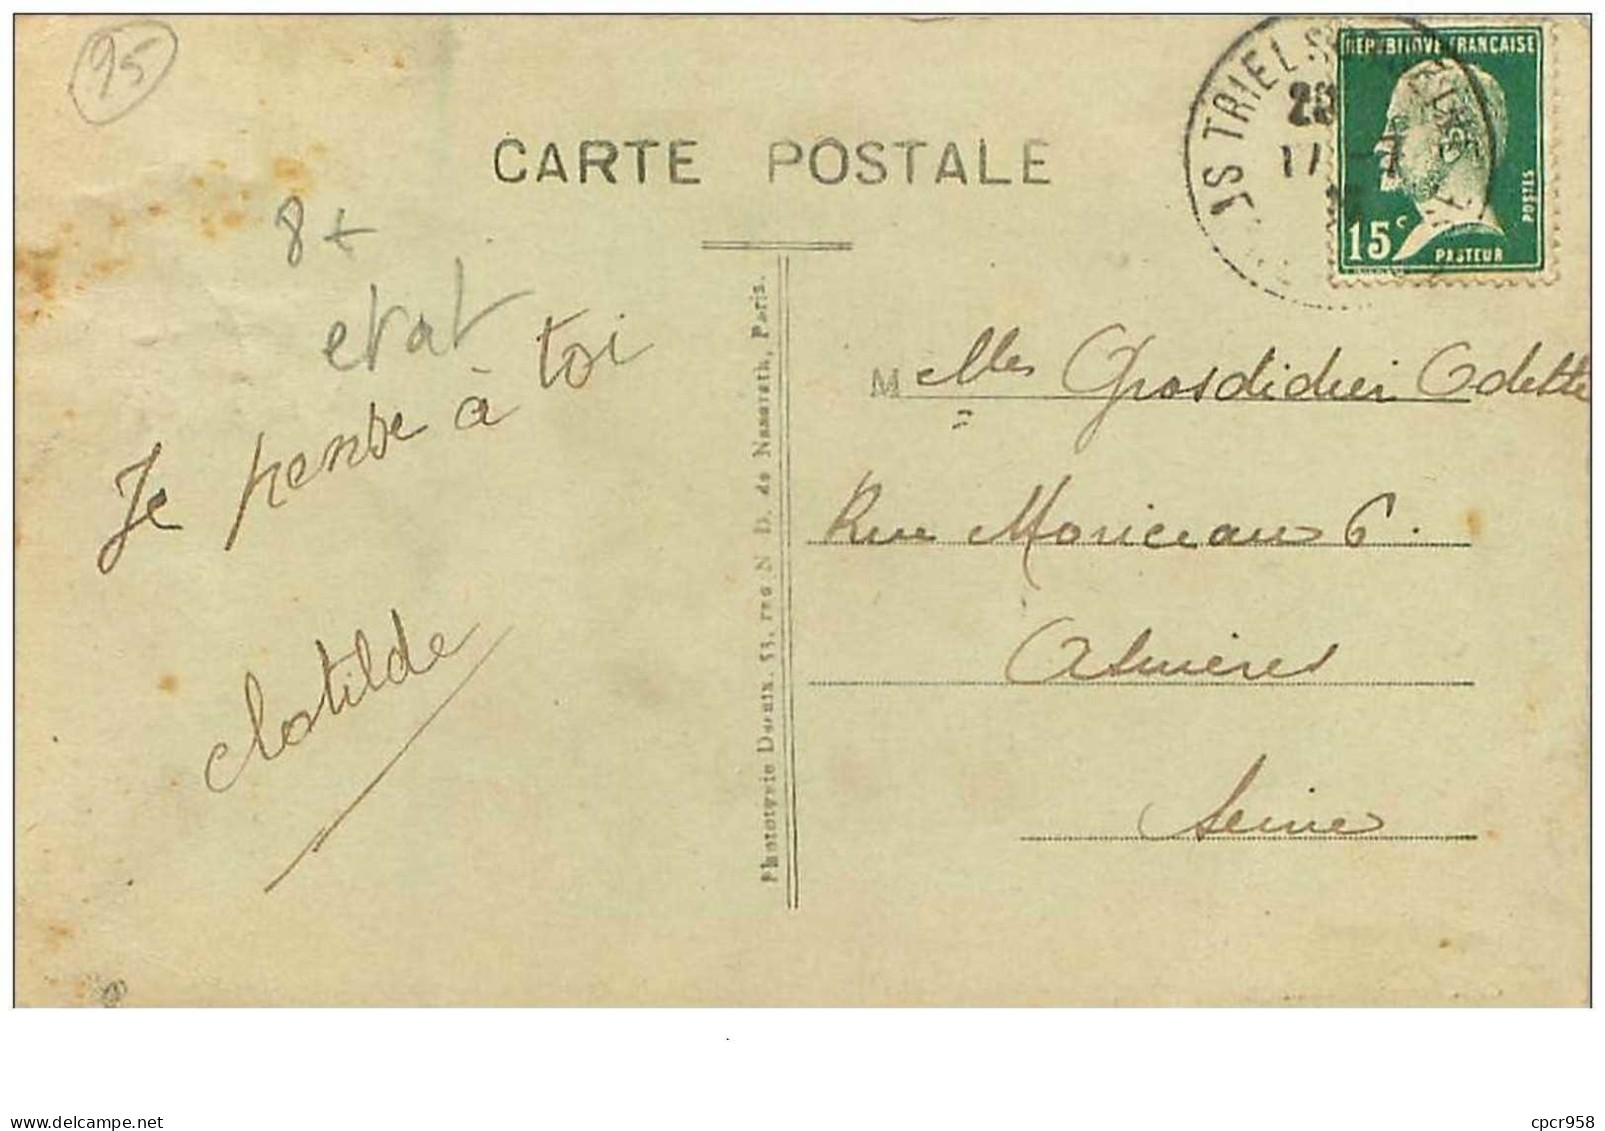 95
CARTE POSTALE
TRIEL
17 -7
RÉPUBLIQUE FRANÇAISE
POSTES
15c
PASTEUR
8+
etat
Je pense à toi
Clotilde
Phototypie Desaix, 53, rue N. D. de Nazareth, Paris.
M elles Grosdidier Odette
Rue Moriceau 6.
Asnières
Seine
Delcampe.net
cpcr958